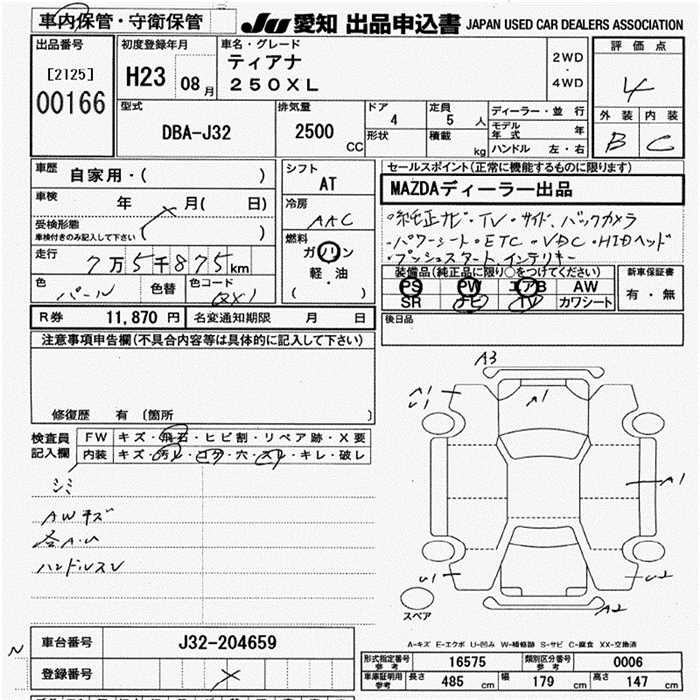 車内保管・守衛保管
JU 愛知 出品申込書 JAPAN USED CAR DEALERS ASSOCIATION
出品番号
[2125]
00166
初度登録年月
H23 08月
車名・グレード
ティアナ
250XL
2WD
・
4WD
評価点
4
外装 内装
B C
型式
DBA-J32
排気量
2500 CC
ドア
4
形状
定員
5 人
積載
kg
ディーラー・並行
モデル年式 年
ハンドル 左・右
車歴
自家用・( )
車検 年 月( 日)
受検形態
車検付きのみ記入して下さい ( )
走行
7万5千875km
色
パール
色替
色コード
QX1
シフト
AT
冷房
AAC
燃料
ガソリン
軽・油
( )
セールスポイント(正常に機能するものに限ります)
MAZDAディーラー出品
・純正ナビ・TV・サイド、バックカメラ
・パワーシート・ETC・VDC・HIDヘッド
・プッシュスタート、インテリキー
装備品(純正品に限り○をつけてください)
PS PW エアB AW
SR ナビ TV カワシート
新車保証書
有・無
R券 11,870 円 名変通知期限 月 日
後日品
注意事項申告欄(不具合内容等は具体的に記入して下さい)
修復歴 有 〔箇所 〕
検査員
記入欄
FW キズ・飛石・ヒビ割・リペア跡・X要
内装 キズ・汚レ・コゲ・穴・スレ・キレ・破レ
シミ
AWキズ
各A.U
ハンドルスレ
A3
A1
U1
A1
A1
U1
U2
A2
スペア
A-キズ E-エクボ U-凹み W-補修跡 S-サビ C-腐食 XX-交換済
N
車台番号 J32-204659
登録番号
形式指定番号
参考
16575
類別区分番号
参考
0006
車庫証明用
参考
長さ 485 cm 幅 179 cm 高さ 147 cm